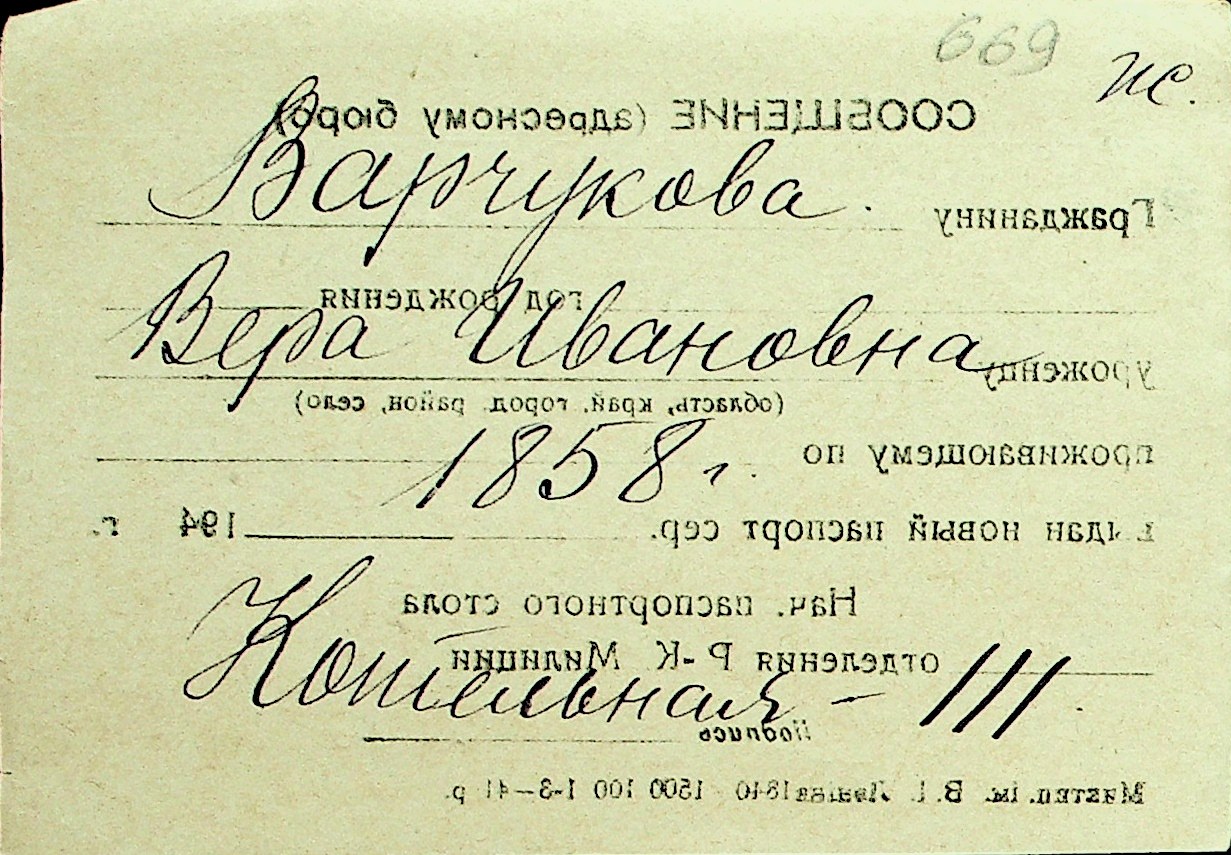 669 ж.
СООБЩЕНИЕ (адресному бюро)
Варчукова.
Гражданину
год рождения
Вера Ивановна
уроженцу
(область, край, город, район, село)
1858 г.
проживающему по
выдан новый паспорт сер. 194 г.
Нач. паспортного стола
отделения Р-К Милиции
Котельная - 111
Подпись
В. І. 1500 100 1-3-41 р.